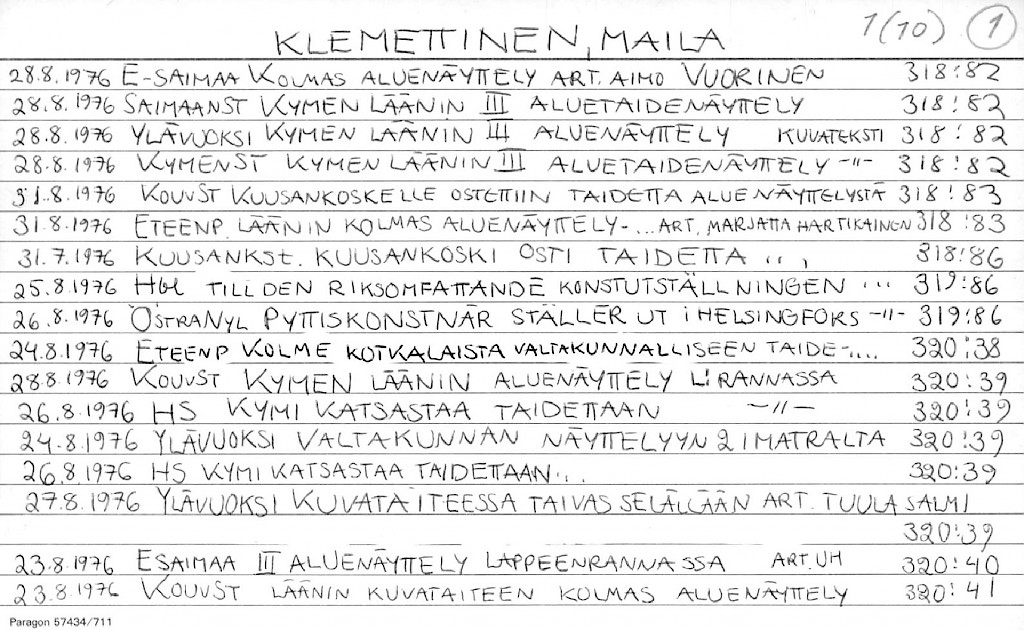 1(10) 1
KLEMETTINEN, MAILA
28.8.1976 E-SAIMAA KOLMAS ALUENÄYTTELY ART. AIMO VUORINEN 318:82
28.8.1976 SAIMAANST KYMEN LÄÄNIN III ALUETAIDENÄYTTELY 318:82
28.8.1976 YLÄVUOKSI KYMEN LÄÄNIN III ALUENÄYTTELY KUVATEKSTI 318:82
28.8.1976 KYMENST KYMEN LÄÄNIN III ALUETAIDENÄYTTELY -"- 318:82
31.8.1976 KOUVST KUUSANKOSKELLE OSTETTIIN TAIDETTA ALUENÄYTTELYSTÄ 318:83
31.8.1976 ETEENP. LÄÄNIN KOLMAS ALUENÄYTTELY-... ART. MARJATTA HARTIKAINEN 318:83
31.7.1976 KUUSANKST. KUUSANKOSKI OSTI TAIDETTA ... 318:86
25.8.1976 Hbl TILL DEN RIKSOMFATTANDE KONSTUTSTÄLLNINGEN ... 319:86
26.8.1976 ÖSTRANYL PYTTISKONSTNÄR STÄLLER UT i HELSINGFORS -"- 319:86
24.8.1976 ETEENP KOLME KOTKALAISTA VALTAKUNNALLISEEN TAIDE-... 320:38
28.8.1976 KOUVST KYMEN LÄÄNIN ALUENÄYTTELY L:RANNASSA 320:39
26.8.1976 HS KYMI KATSASTAA TAIDETTAAN -"- 320:39
24.8.1976 YLÄVUOKSI VALTAKUNNAN NÄYTTELYYN 2 IMATRALTA 320:39
26.8.1976 HS KYMI KATSASTAA TAIDETTAAN... 320:39
27.8.1976 YLÄVUOKSI KUVATAITEESSA TAIVAS SELÄLLÄÄN ART. TUULA SALMI
320:39
23.8.1976 ESAIMAA III ALUENÄYTTELY LAPPEENRANNASSA ART. UH 320:40
23.8.1976 KOUVST LÄÄNIN KUVATAITEEN KOLMAS ALUENÄYTTELY 320:41
Paragon 57434/711